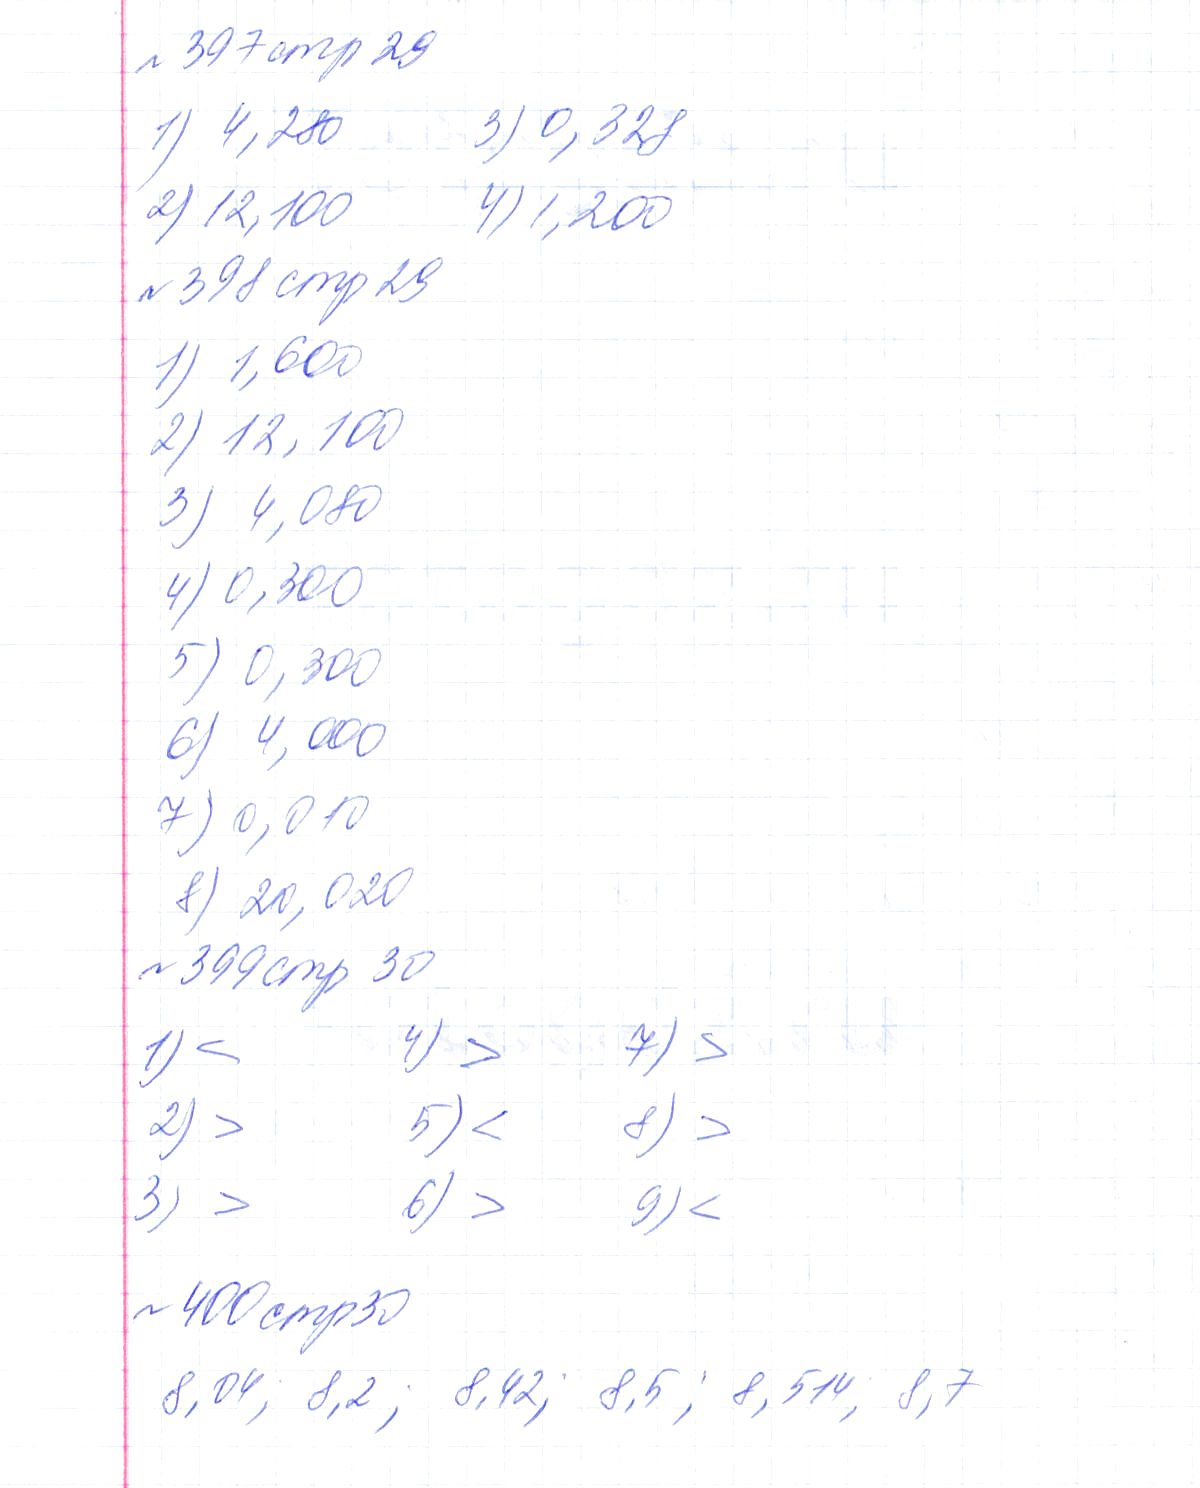 №397 стр 29
1) 4,280 3) 0,328
2) 12,100 4) 1,200
№398 стр 29
1) 1,600
2) 12,100
3) 4,080
4) 0,300
5) 0,300
6) 4,000
7) 0,010
8) 20,020
№399 стр 30
1) < 4) > 7) >
2) > 5) < 8) >
3) > 6) > 9) <
№400 стр 30
8,04; 8,2; 8,42; 8,5; 8,514; 8,7